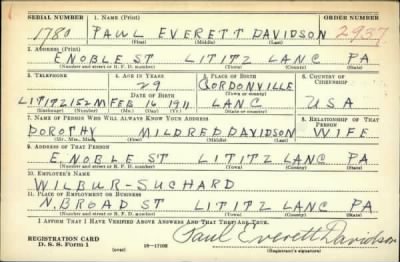 SERIAL NUMBER 1. NAME (Print) ORDER NUMBER
1780 PAUL EVERETT DAVIDSON 2937
(First) (Middle) (Last)
2. ADDRESS (Print)
E NOBLE ST LITITZ LANC PA
(Number and street or R. F. D. number) (Town) (County) (State)
3. TELEPHONE 4. AGE IN YEARS 5. PLACE OF BIRTH 6. COUNTRY OF CITIZENSHIP
29 GORDONVILLE
DATE OF BIRTH (Town or county)
LITITZ 152M FEB 16 1911 LANC USA
(Exchange) (Number) (Mo.) (Day) (Yr.) (State or country)
7. NAME OF PERSON WHO WILL ALWAYS KNOW YOUR ADDRESS 8. RELATIONSHIP OF THAT PERSON
DOROTHY MILDRED DAVIDSON WIFE
(Mr., Mrs., Miss) (First) (Middle) (Last)
9. ADDRESS OF THAT PERSON
E. NOBLE ST LITITZ LANC PA
(Number and street or R. F. D. number) (Town) (County) (State)
10. EMPLOYER'S NAME
WILBUR-SUCHARD
11. PLACE OF EMPLOYMENT OR BUSINESS
N. BROAD ST LITITZ LANC PA
(Number and street or R. F. D. number) (Town) (County) (State)
I AFFIRM THAT I HAVE VERIFIED ABOVE ANSWERS AND THAT THEY ARE TRUE.
REGISTRATION CARD Paul Everett Davidson
D. S. S. Form 1 (over) 16—17105 (Registrant's signature)